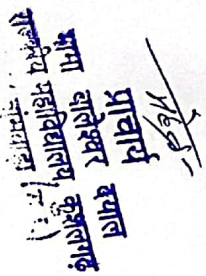 प्राचार्य
मामा बालेश्वर दयाल
राजकीय महाविद्यालय कुशलगढ़